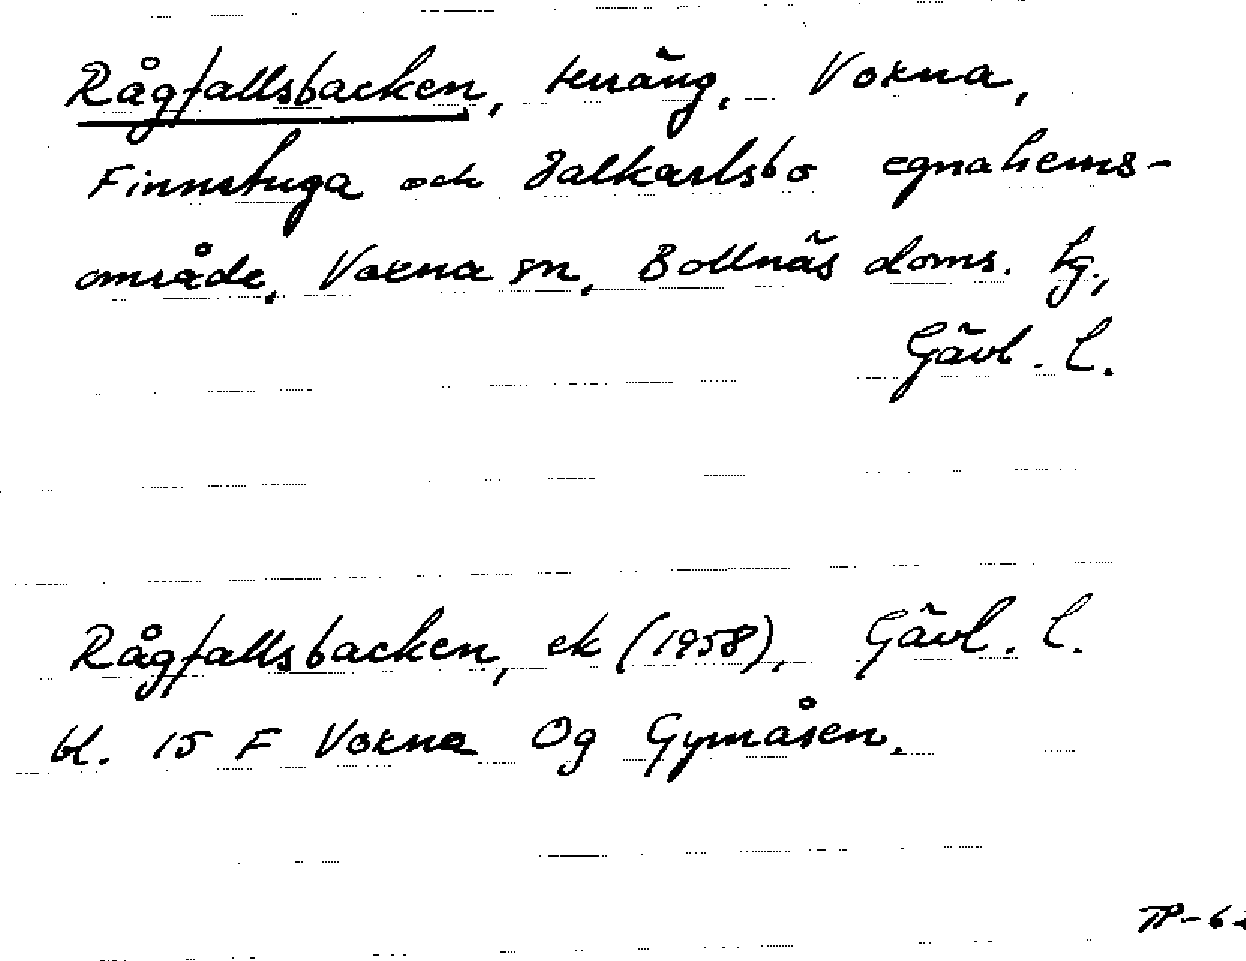 Rågfallsbacken, teräng, Voxna,
Finnstuga och Jalkarlsbo egnahems-
område, Voxna sn, Bollnäs doms. tg.,
Gävl. l.
Rågfallsbacken, ek (1958), Gävl. l.
bl. 15 F Voxna Og Gymåsen.
TP-62